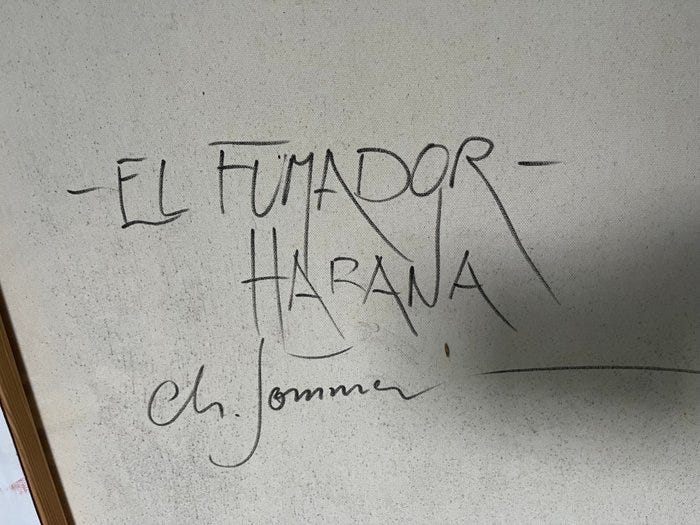 - EL FUMADOR -
HABANA
Ch. Sommer